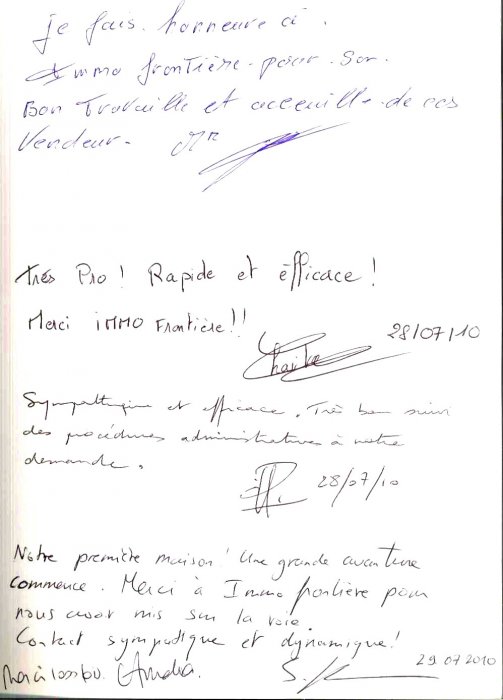 je fais. honneure à.
Immo frontière. pour. Son.
Bon Travaille et acceuille. de ces
Vendeur. Mr
Très Pro! Rapide et éfficace!
Merci iMMO Frontière!!
28/07/10
Sympathique et efficace. Très bon suivi
des procédures administratives à notre
demande.
28/07/10
Notre première maison! Une grande aventure
commence. Merci à Immo frontière pour
nous avoir mis sur la voie.
Contact sympatique et dynamique!
29 07 2010